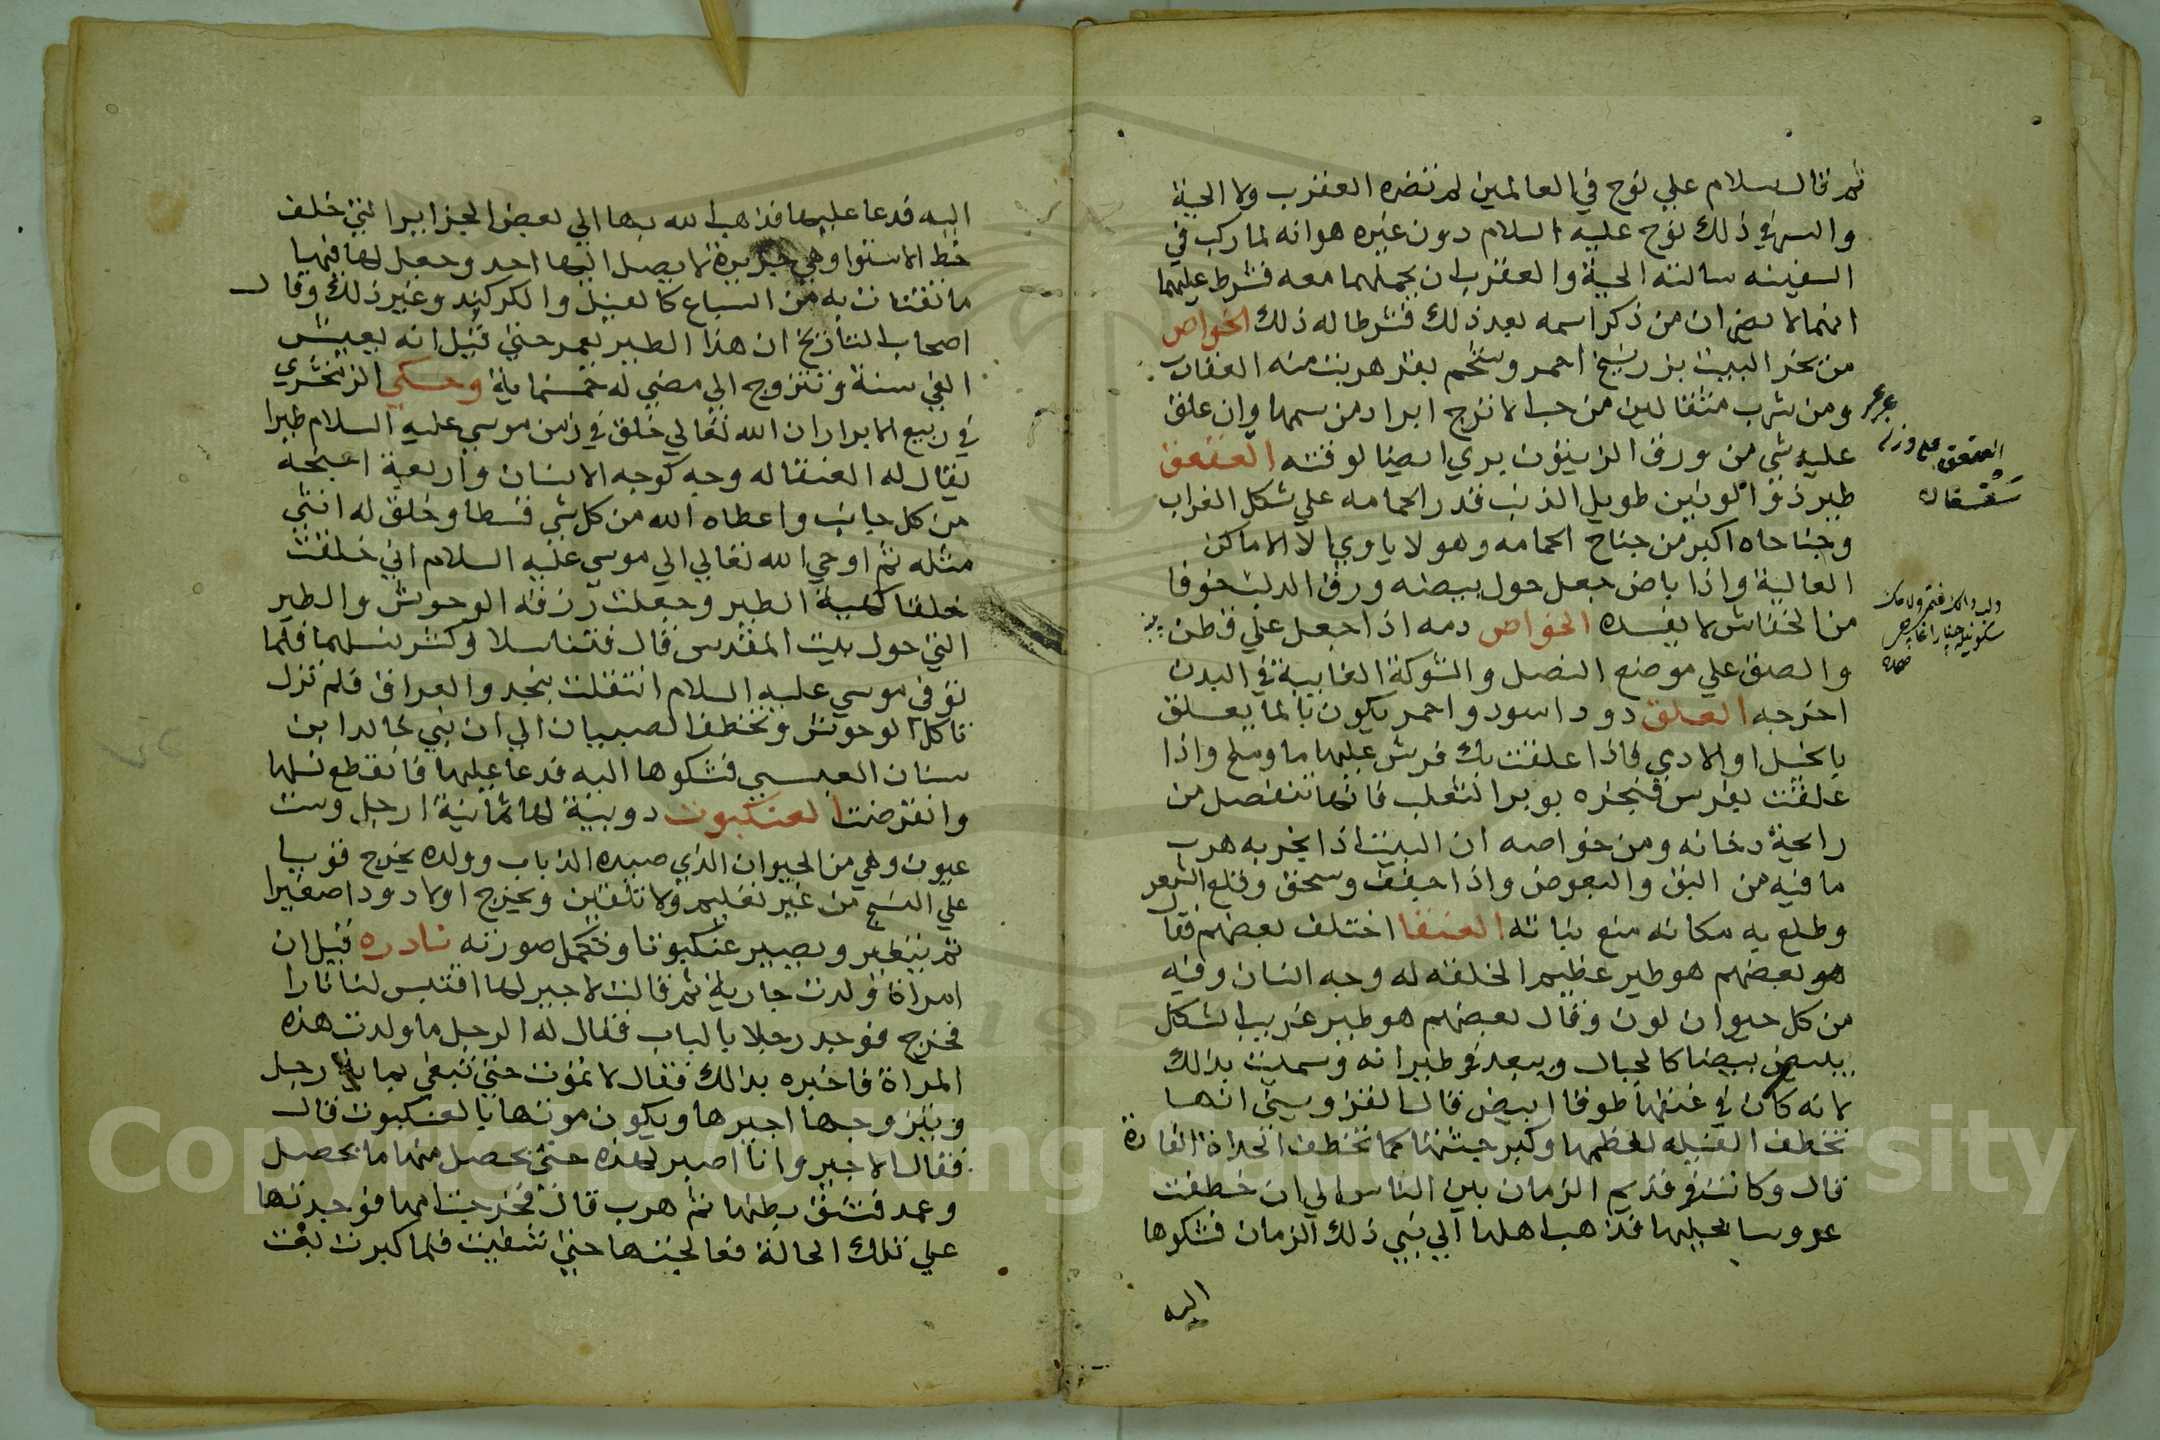 ثم قال سلام علي نوح في العالمين لم تضره العقرب ولا الحية
والسر في ذلك نوح عليه السلام دون غيره هو انه لما ركب في
السفينه سالته الحية والعقرب ان يحملهما معه فشرط عليهما
انهما لا يضران من ذكر اسمه بعد ذلك فشرطا له ذلك الخواص
من بخر البيت بزرنيخ احمر وشحم بقر هربت منه العقارب
ومن شرب مثقالين من حب الاترج ابراه من سمها وان علق
عليه شي من ورق الزيتون بري ايضا لوقته العقعق
طير ذو لونين طويل الذنب قدر الحمامه علي شكل الغراب
وجناحاه اكبر من جناح الحمامه وهو لا ياوي الا الاماكن
العالية واذا باض جعل حول بيضه ورق الدلب خوفا
من الخفاش لا يفسده الخواص دمه اذا جعل علي قطن
والصق علي موضع النصل والشوكة الغايبة في البدن
اخرجه العلق دود اسود واحمر يكون بالما يعلق
بالخيل او الادمي فاذا علقت بك فرش عليها ما وملح واذا
علقت بفرس فبخره بوبر الثعلب فانها تنفصل من
رايحة دخانه ومن خواصه ان البيت اذا بخر به هرب
ما فيه من البق والبعوض واذا جفف وسحق وقلع الشعر
وطلع به مكانه منع نباته العنقا اختلف بعضهم فقا
هو بعضهم هو طير عظيم الخلقه له وجه انسان وفيه
من كل حيوان لون وقال بعضهم هو طير غريب الشكل
يبيض بيضا كالجبال ويبعد في طيرانه وسميت بذلك
لانه كان في عنقها طوقا ابيض قال القزويني انها
تخطف الفيله لعظمها وكبر جثتها كما تخطف الحداة الفارة
قال وكانت في قديم الزمان بين الناس الي ان خطفت
عروسا بحليها فذهب اهلها الي نبي ذلك الزمان فشكوها
اليه
العقعق علي وزن
اليه فدعا عليها فذهب الله بها الي بعض الجزاير التي خلف
خط الاستوا وهي جزيرة لا يصل اليها احد وجعل لها فيها
ما تقتات به من السباع كالفيل والكركند وغير ذلك وقال
اصحاب التاريخ ان هذا الطير يعمر حتي قيل انه يعيش
الفي سنة وتتزوج الي مضي له خمسماية وحكي الزمخشري
في ربيع الابرار ان الله تعالي خلق في زمن موسي عليه السلام طيرا
يقال له العنقا له وجه كوجه الانسان واربعة اجنحه
من كل جانب واعطاه الله من كل شي قسطا وخلق له انثي
مثله ثم اوحي الله تعالي الي موسي عليه السلام اني خلقت
خلقا كهية الطير وجعلت رزقه الوحوش والطير
التي حول بيت المقدس قال فتناسلا وكثر نسلهما فلما
توفي موسي عليه السلام انتقلت بنجد والعراق فلم تزل
تاكل الوحوش وتخطف الصبيان الي ان نبي خالد ابن
سنان العبسي فشكوها اليه فدعا عليها فانقطع نسلها
وانقرضت العنكبوت دويبة لها ثمانية ارجل وست
عيون وهي من الحيوان الذي صيده الذباب وولده يخرج قويا
علي النسج من غير تعليم ولا تلقين ويخرج اولا دودا صغيرا
ثم يتغير ويصير عنكبوتا وتكمل صورته نادره قيل ان
امراة ولدت جارية ثم قالت لاجير لها اقتبس لنا نارا
فخرج فوجد رجلا بالباب فقال له الرجل ما ولدت هذه
المراة فاخبره بذلك فقال لا تموت حتي تبغي بماية رجل
ويتزوجها اجيرها ويكون موتها بالعنكبوت قال
فقال الاجير وانا اصبر لهذه حتي يحصل منها ما يحصل
وعمد فشق بطنها ثم هرب قال فخرجت امها فوجدتها
علي تلك الحالة فعالجتها حتي شفيت فلما كبرت بغت
Copyright © King Saud University